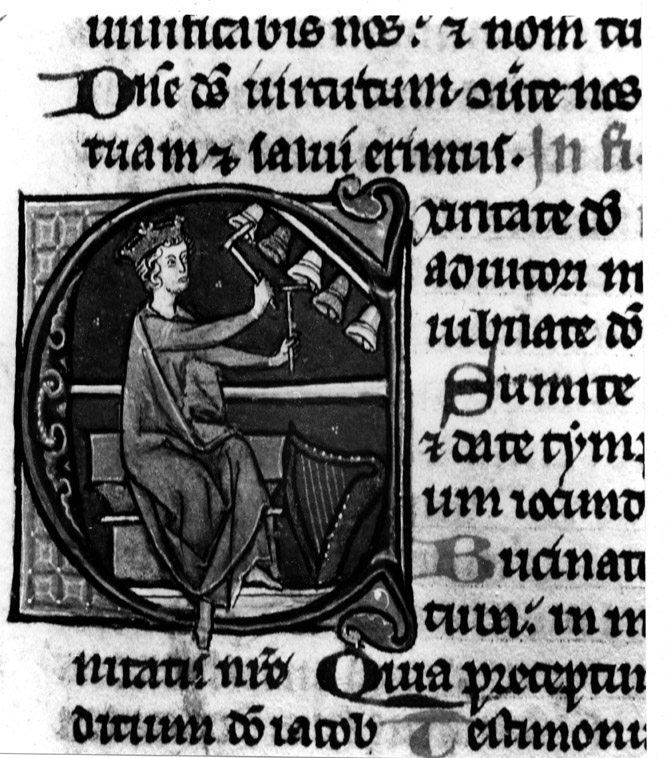 uiuificabis nos: ⁊ nom tu
Dñe dš uirtutum ɔũte nos
tuam ⁊ salui erimus. In fi.
Exultate dõ
adiutori n
iubilate dõ
Sumite
⁊ date tymp
um iocund
Bucinate
in in
nitatis nrẽ Quia preceptum
dicium dõ iacob Testimoni